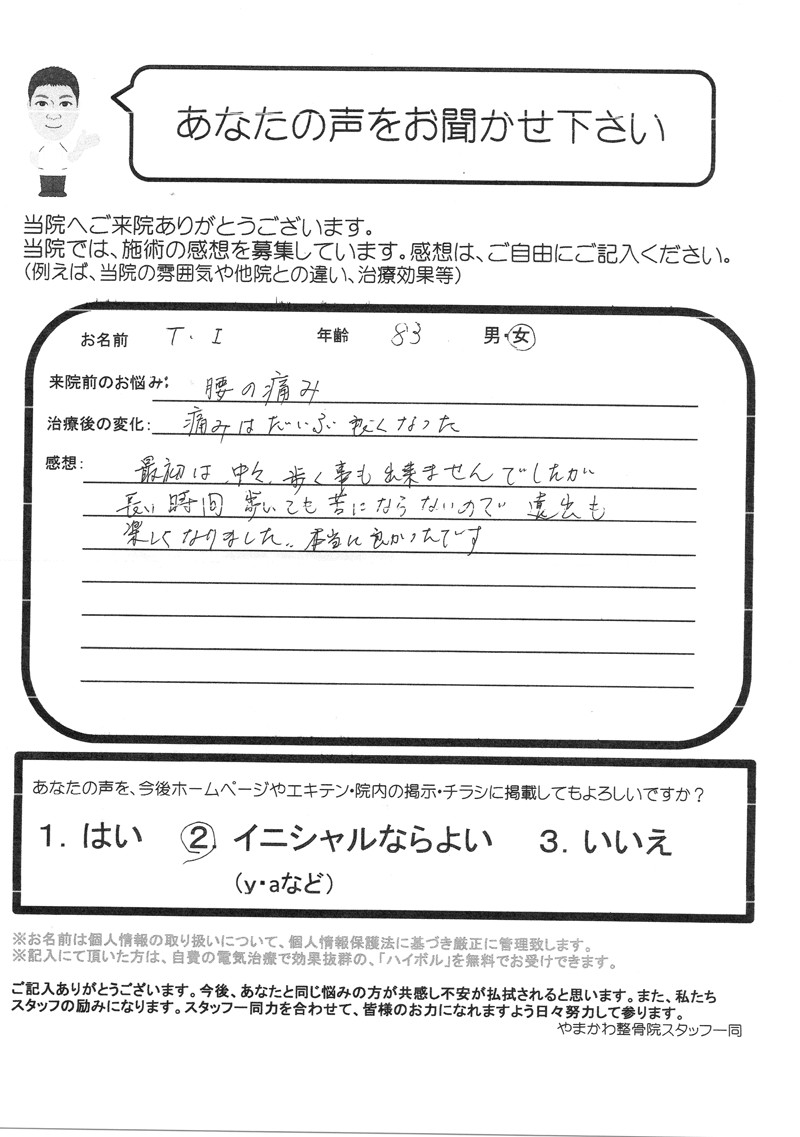 あなたの声をお聞かせ下さい
当院へご来院ありがとうございます。
当院では、施術の感想を募集しています。感想は、ご自由にご記入ください。
(例えば、当院の雰囲気や他院との違い、治療効果等)
お名前 T・I 年齢 83 男・女
来院前のお悩み: 腰の痛み
治療後の変化: 痛みはだいぶ良くなった
感想: 最初は、中々、歩く事も出来ませんでしたが
長い時間 歩いても苦にならないので 遠出も
楽しくなりました。本当に良かったです
あなたの声を、今後ホームページやエキテン・院内の掲示・チラシに掲載してもよろしいですか?
1. はい 2. イニシャルならよい 3. いいえ
(y・aなど)
※お名前は個人情報の取り扱いについて、個人情報保護法に基づき厳正に管理致します。
※記入にて頂いた方は、自費の電気治療で効果抜群の、「ハイボル」を無料でお受けできます。
ご記入ありがとうございます。今後、あなたと同じ悩みの方が共感し不安が払拭されると思います。また、私たち
スタッフの励みになります。スタッフ一同力を合わせて、皆様のお力になれますよう日々努力して参ります。
やまかわ整骨院スタッフ一同